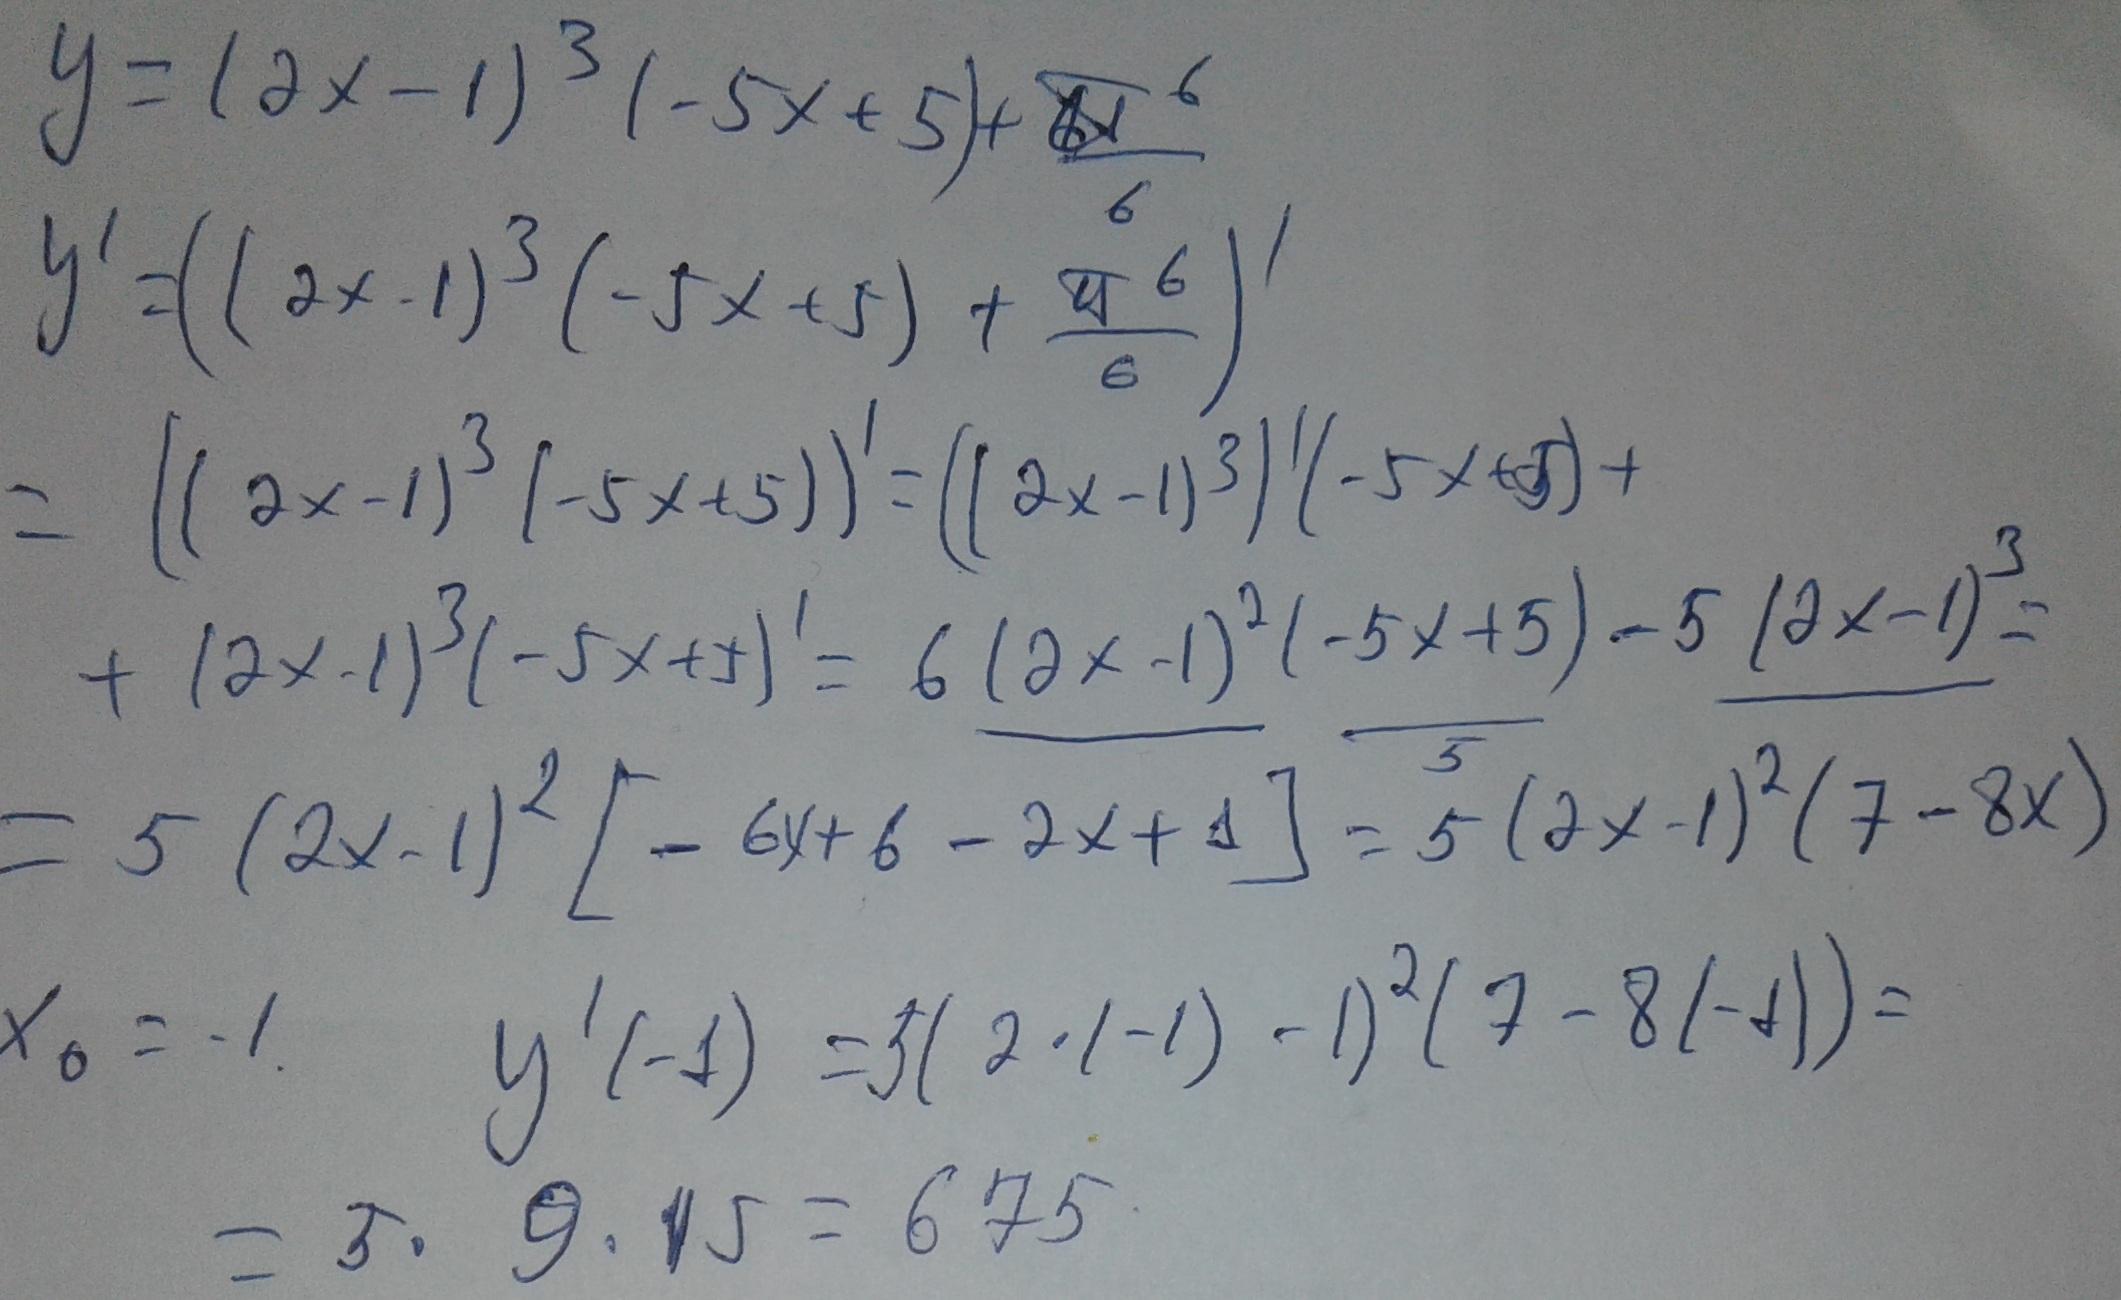 y = (2x-1)³(-5x+5)+ π⁶/6
y' = ((2x-1)³(-5x+5) + π⁶/6)'
= ((2x-1)³(-5x+5))' = ((2x-1)³)'(-5x+5) +
+ (2x-1)³(-5x+5)' = 6(2x-1)²(-5x+5) - 5(2x-1)³ =
5
= 5(2x-1)²[-6x+6-2x+1] = 5(2x-1)²(7-8x)
x₀ = -1. y'(-1) = 5(2·(-1)-1)²(7-8(-1)) =
= 5. 9. 15 = 675.